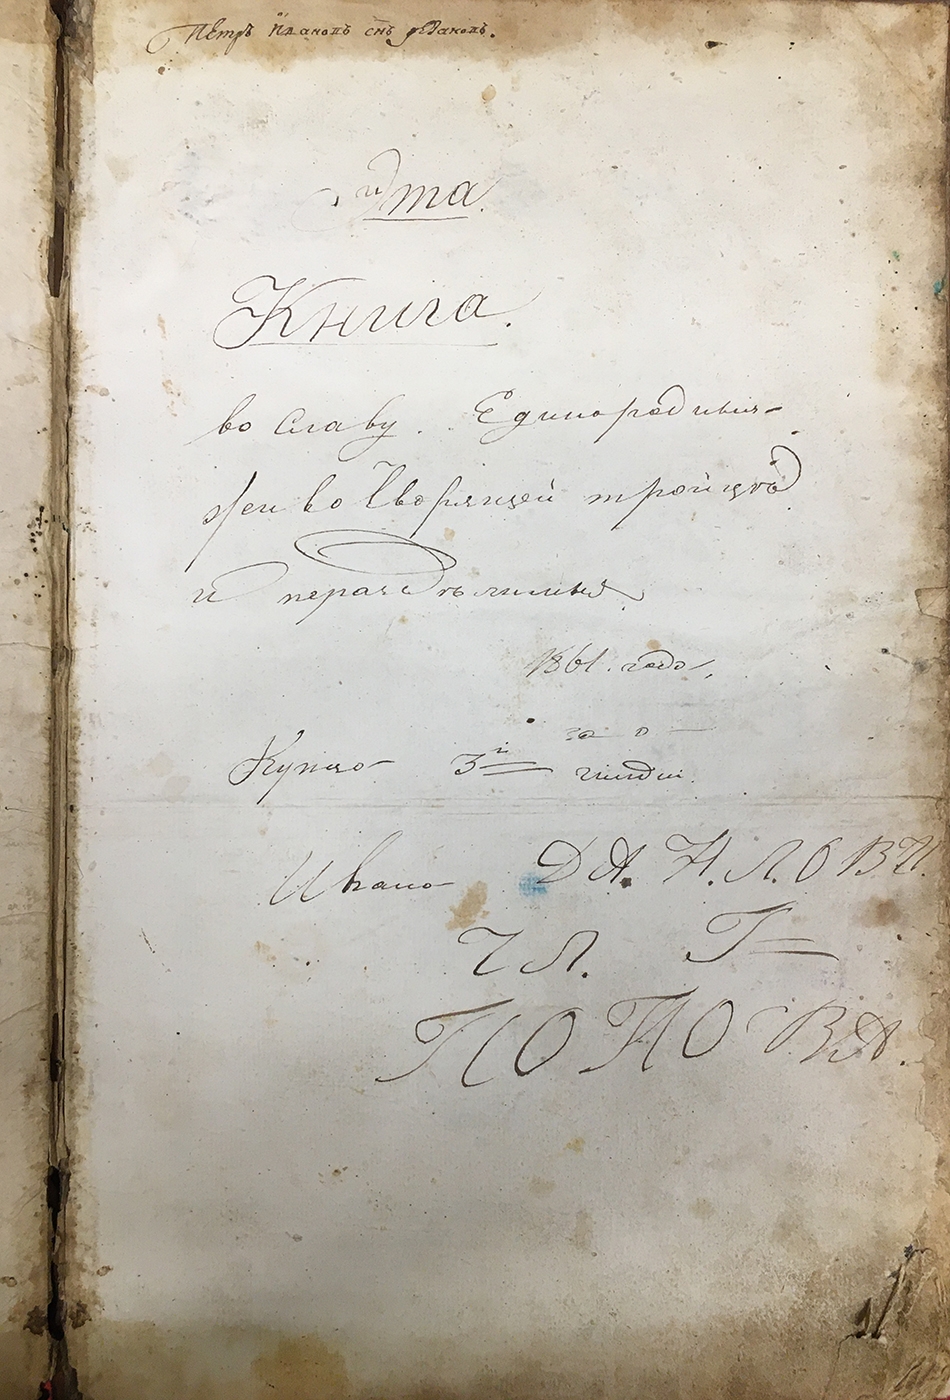 Петръ Ивановъ снъ
Книга.
во Славу. Единородныя
Животворящей тройцѣ
и нераздѣлимыя
1861. года,
Купца 3й гильдии.
Ивана ДА. Н. Л. О ВИ.
ЧЛ. Г
ПОПОВА.